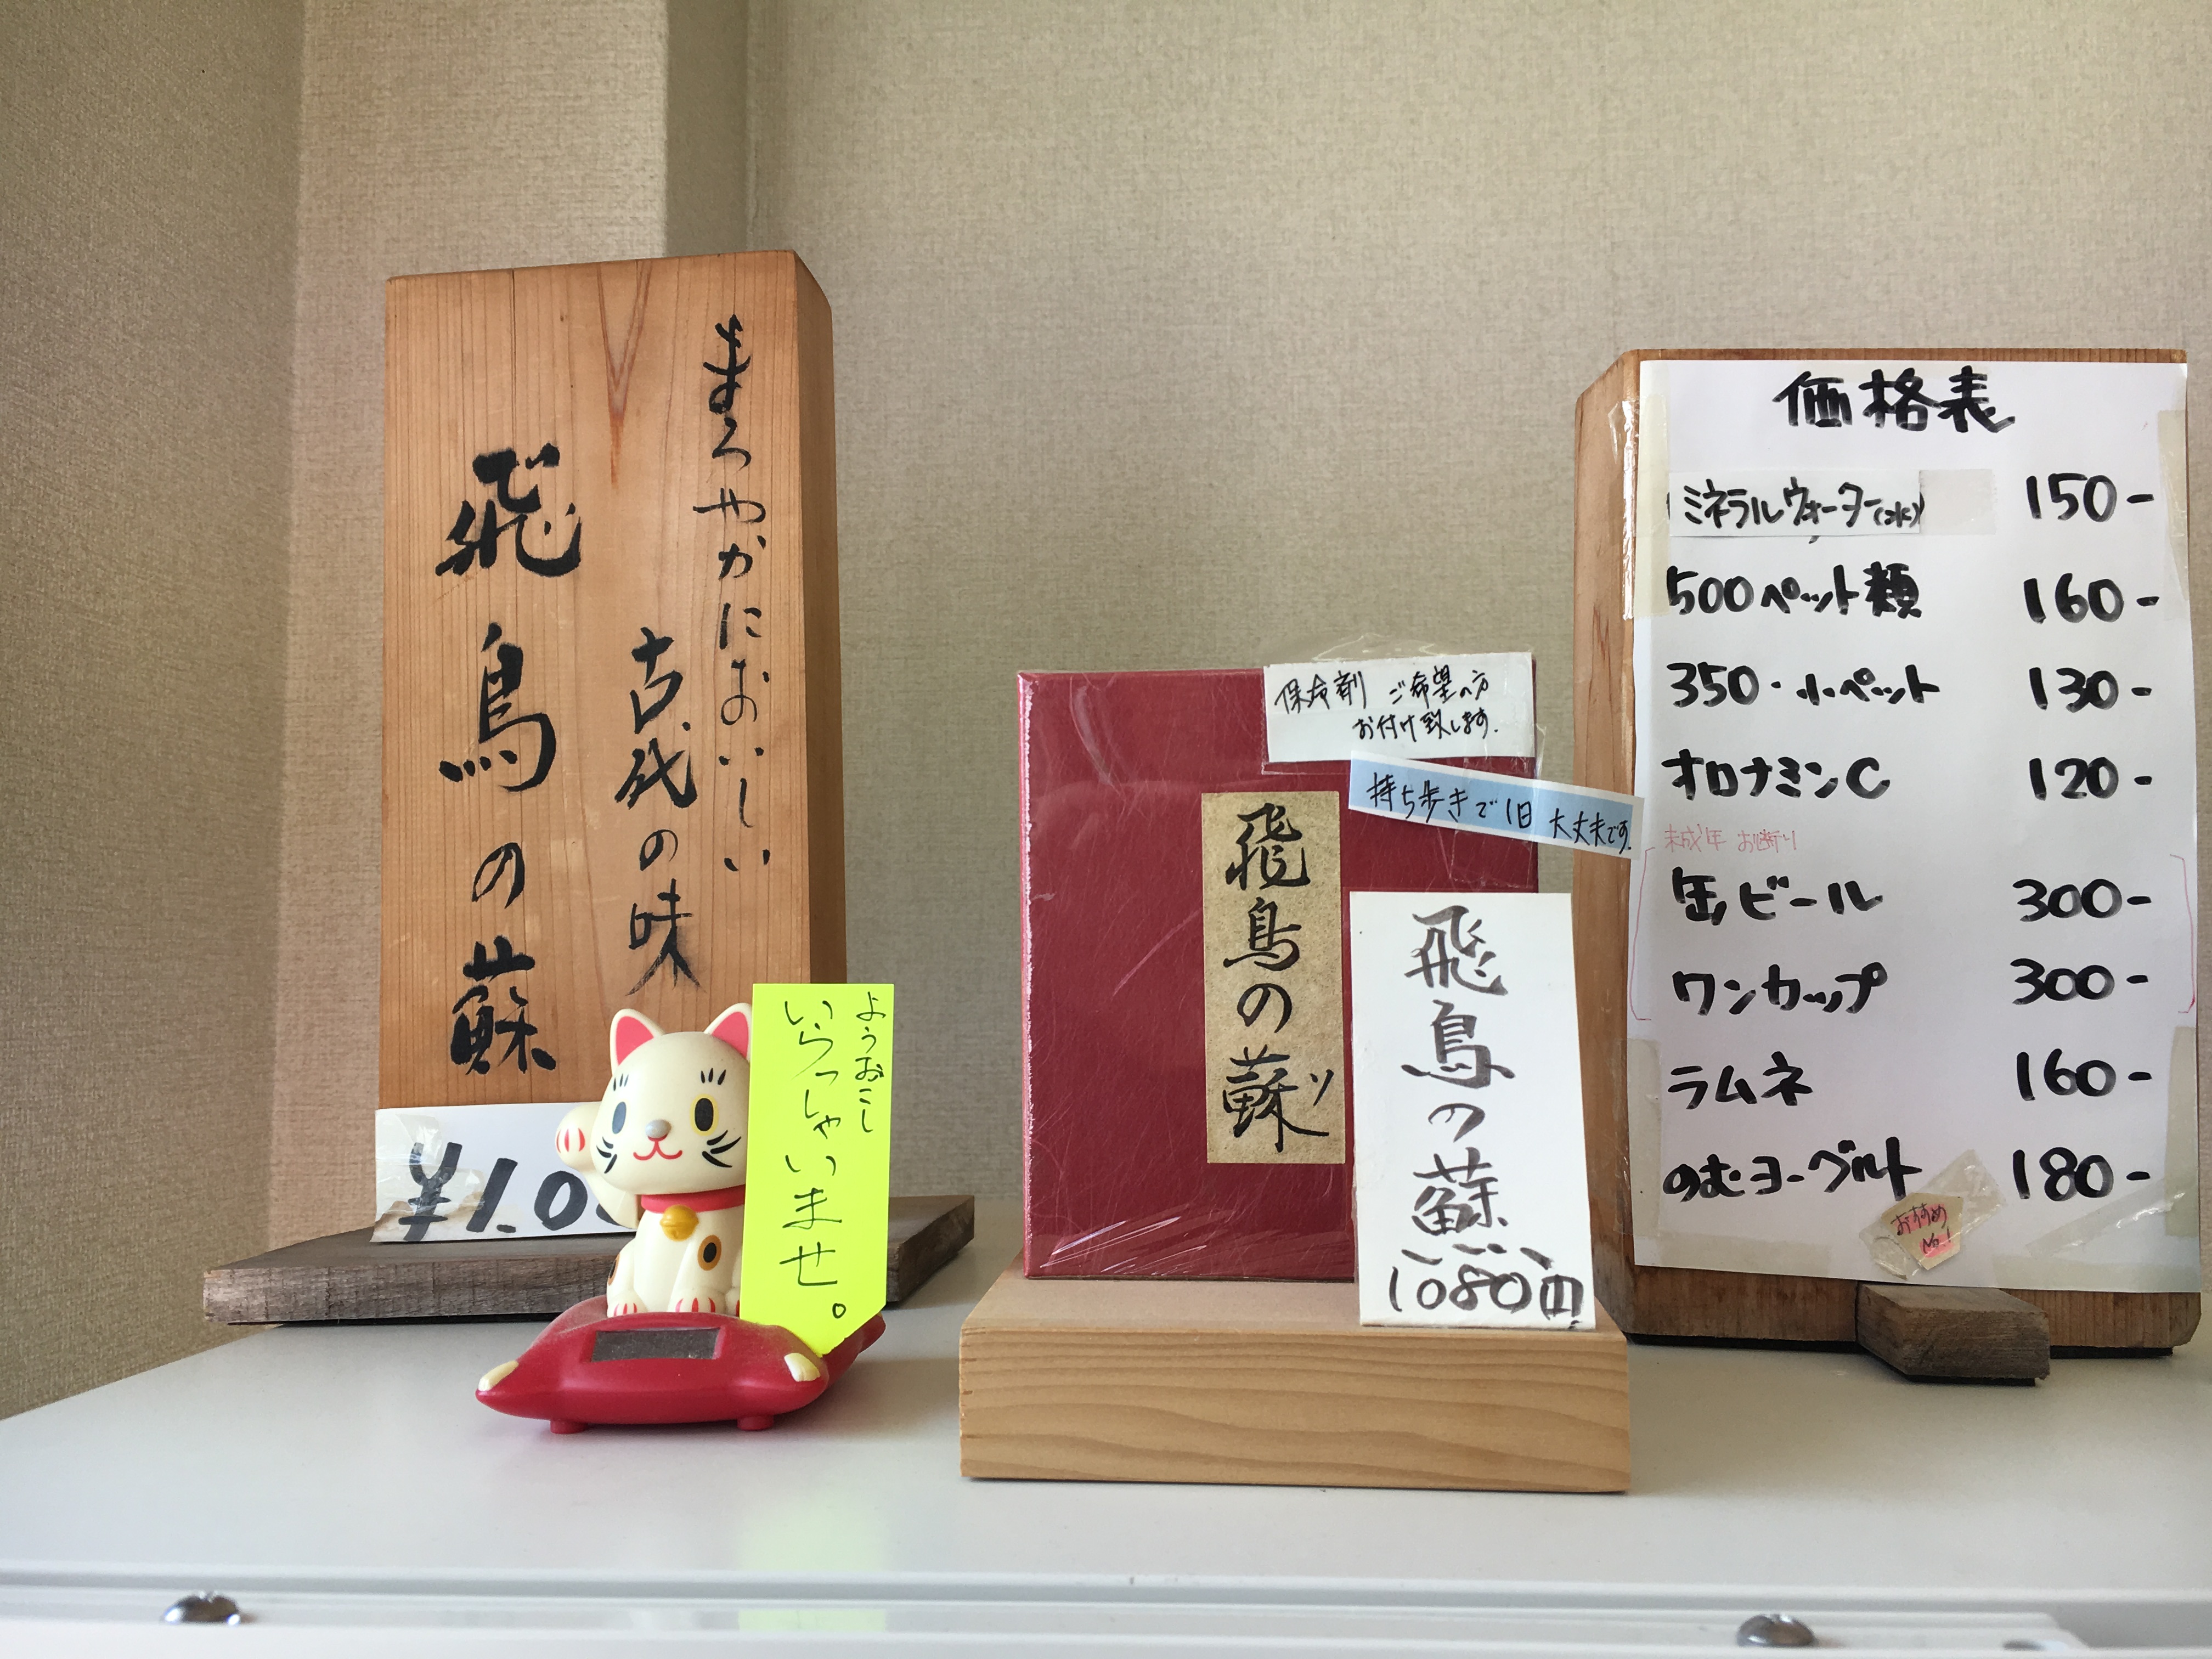 まろやかにおいしい
古代の味
飛鳥の蘇
¥1.0
ようおこし
いらっしゃいませ。
保冷剤 ご希望の方
お付け致します.
持ち歩きで1日 大丈夫です.
飛鳥の蘇
ソ
飛鳥の蘇
1080円
価格表
ミネラルウォーター(水) 150-
500ペット類 160-
350・小ペット 130-
オロナミンC 120-
未成年 お断り
缶ビール 300-
ワンカップ 300-
ラムネ 160-
のむヨーグルト 180-
おすすめ
No.1